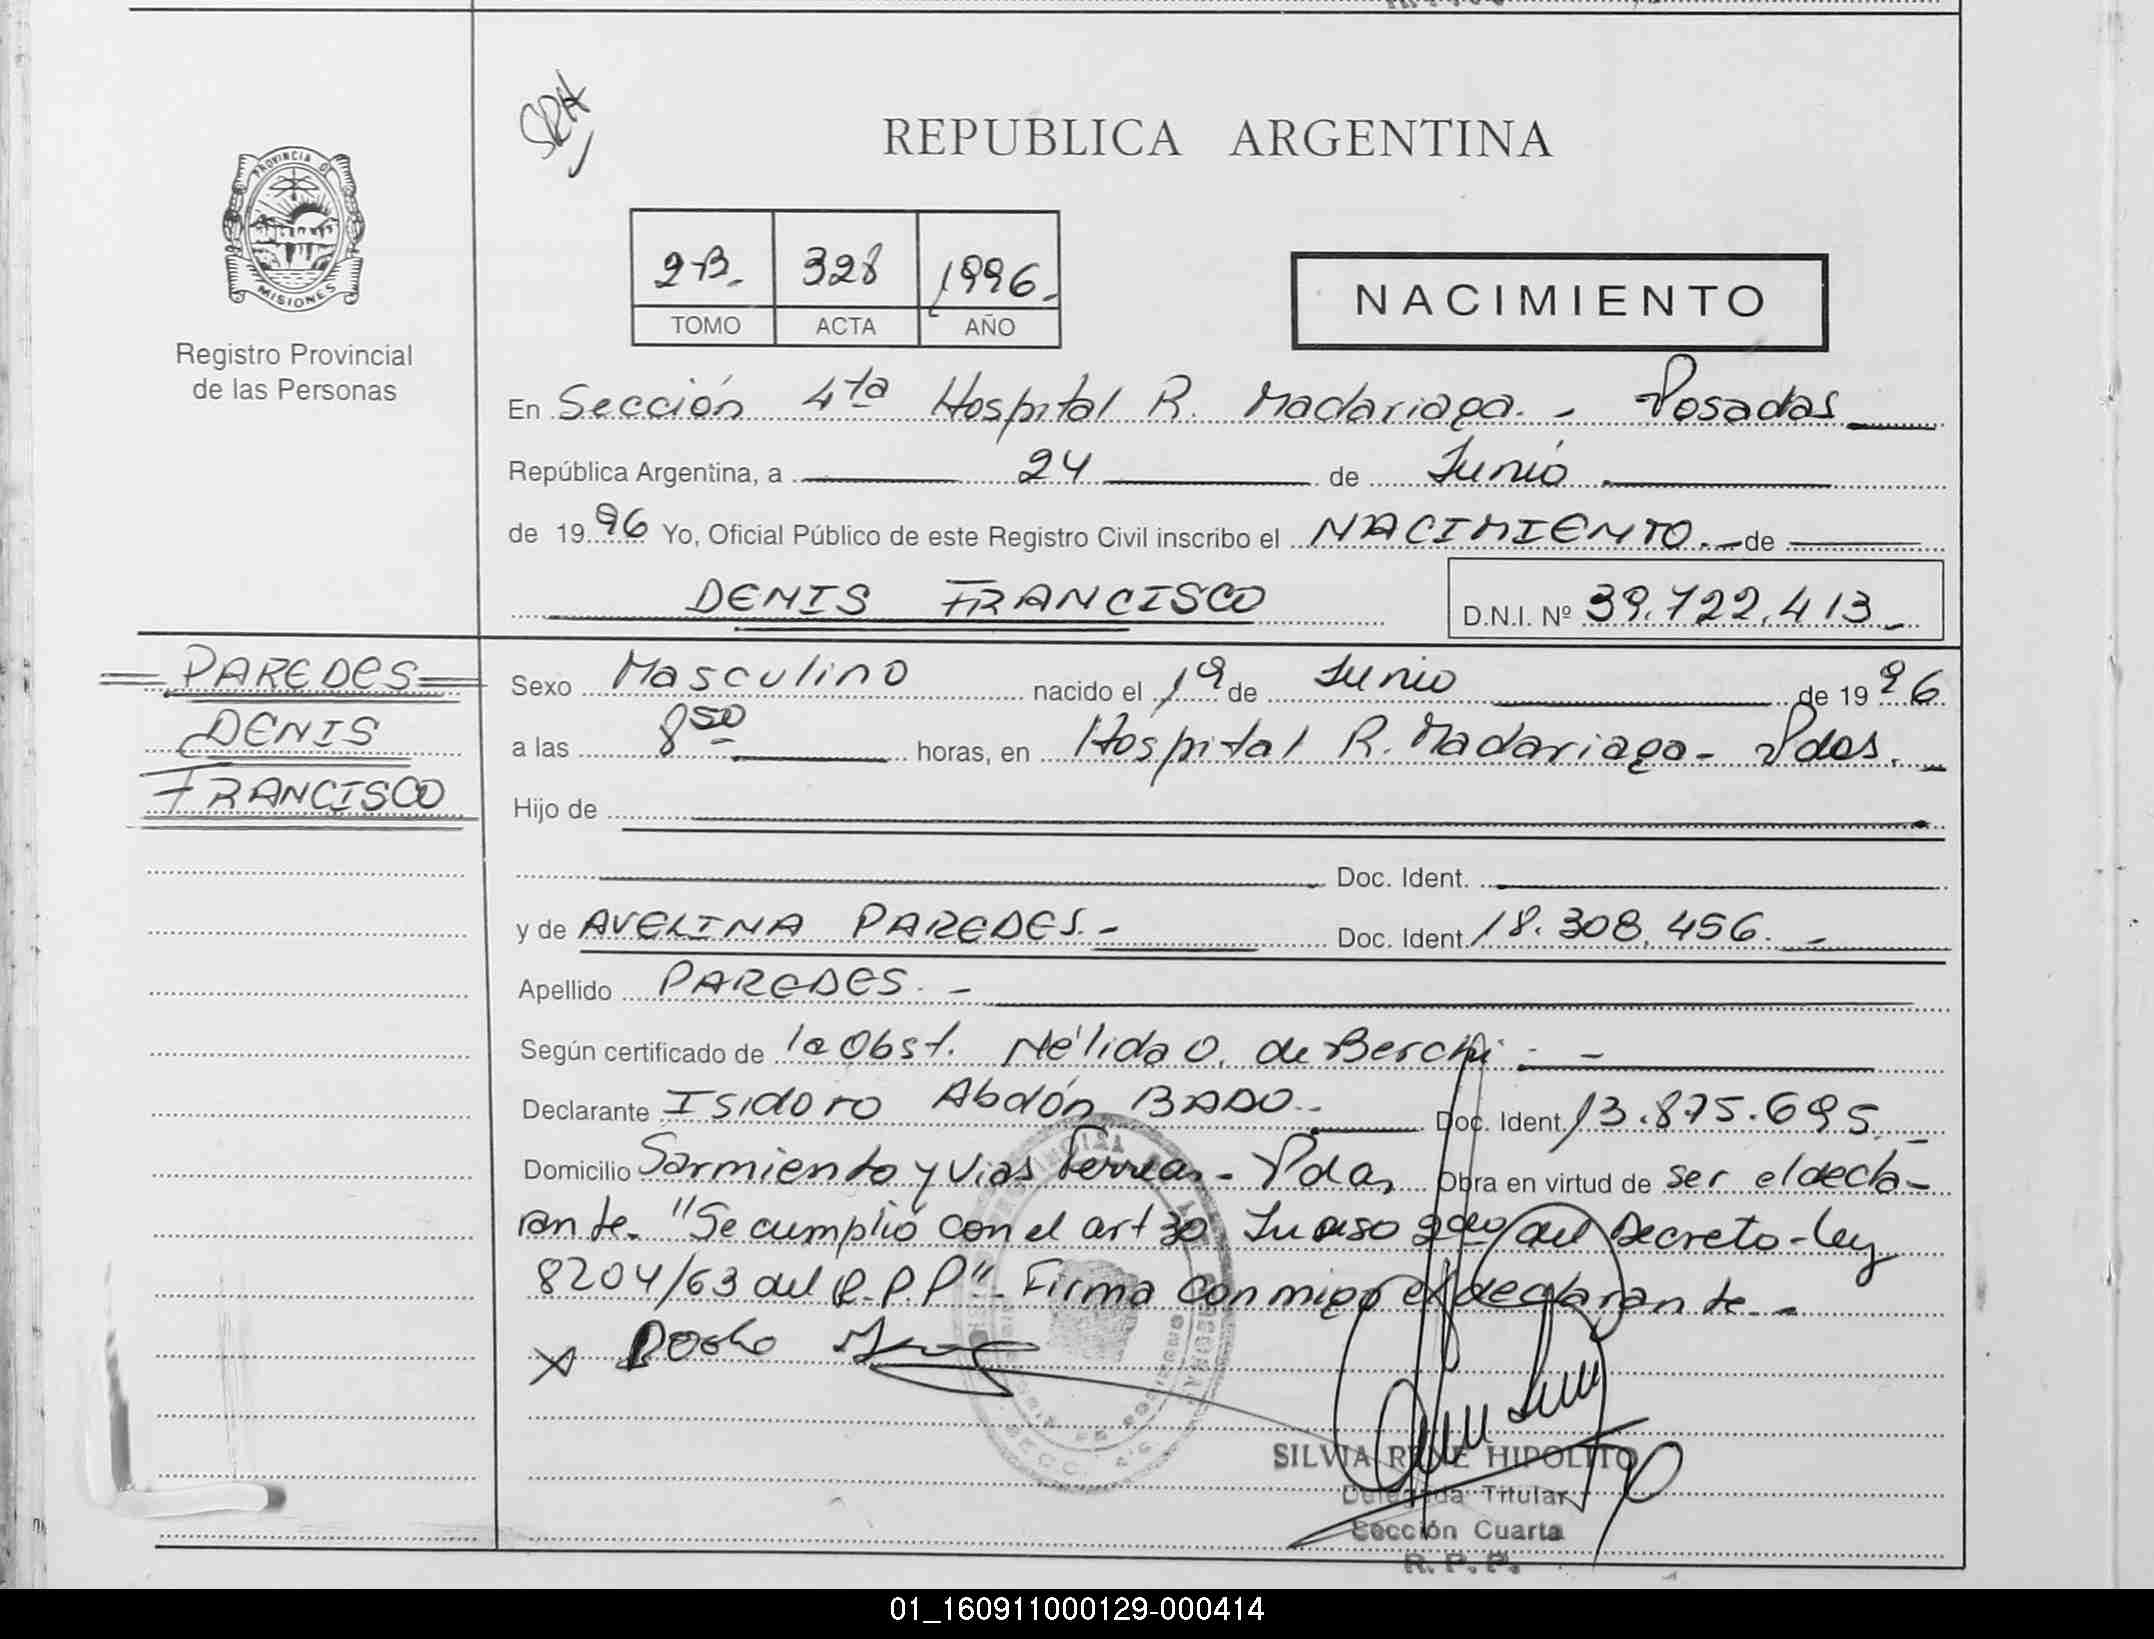 SRH
REPUBLICA ARGENTINA
PROVINCIA DE
MISIONES
Registro Provincial
de las Personas
2-B.- 328 1996.-
TOMO ACTA AÑO
NACIMIENTO
En Sección 4ta Hospital R. Madariaga. - Posadas
República Argentina, a 24 de Junio
de 1996 Yo, Oficial Público de este Registro Civil inscribo el NACIMIENTO.- de
DENIS FRANCISCO D.N.I. Nº 39.722.413.-
PAREDES
DENIS
FRANCISCO
Sexo Masculino nacido el 19 de Junio de 1996
a las 8 50 horas, en Hospital R. Madariaga - Pdas. -
Hijo de
Doc. Ident.
y de AVELINA PAREDES.- Doc. Ident. 18.308.456.-
Apellido PAREDES. -
Según certificado de la Obst. Nélida O. de Berchi. -
Declarante Isidoro Abdón BADO.- Doc. Ident. 13.875.695.-
Domicilio Sarmiento y Vias Ferreas - Pdas Obra en virtud de ser el decla-
rante. "Se cumplió con el art 30 Inciso 2do del Decreto-ley
8204/63 del R.P.P". Firma conmigo el declarante. -
SILVIA RENE HIPOLITO
Delegada Titular
Sección Cuarta
R. P. P.
01_160911000129-000414